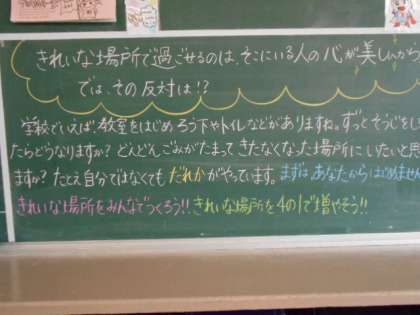 きれいな場所で過ごせるのは、そこにいる人の心が美しいから
では、その反対は!?
学校でいえば、教室をはじめ ろう下やトイレなどがありますね。ずっとそうじをし
たらどうなりますか? どんどんごみがたまって きたなくなった場所にいたいと思
ますか? たとえ自分ではなくても だれかがやっています。まずは あなたからはじめません
きれいな場所をみんなでつくろう!! きれいな場所を4の1で増やそう!!